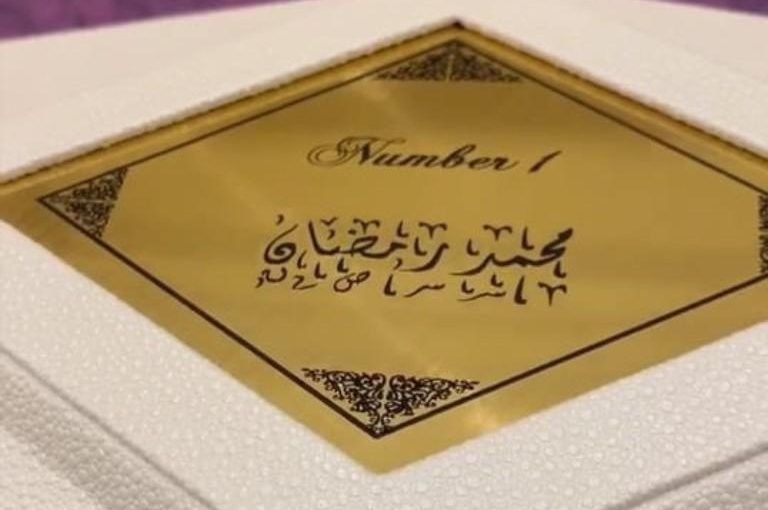 Number 1
محمد رمضان